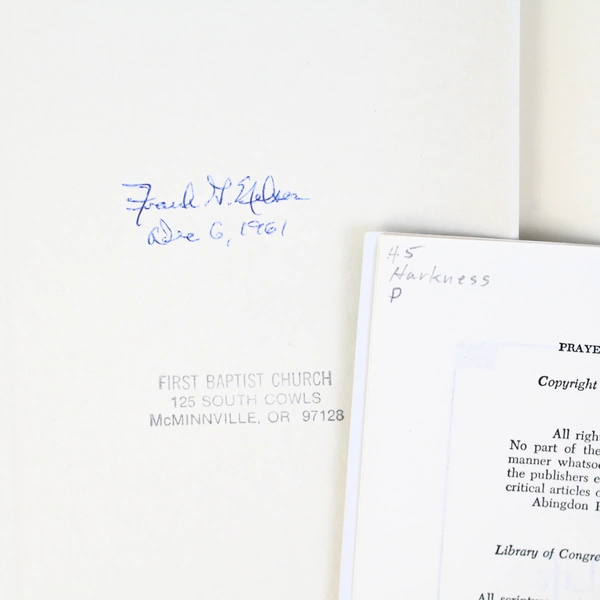 Frank G. Nelson
Dec 6, 1961
FIRST BAPTIST CHURCH
125 SOUTH COWLS
McMINNVILLE, OR 97128
45
Harkness
P
PRAYE
Copyright
All righ
No part of the
manner whatso
the publishers e
critical articles o
Abingdon P
Library of Congre
All scriptu